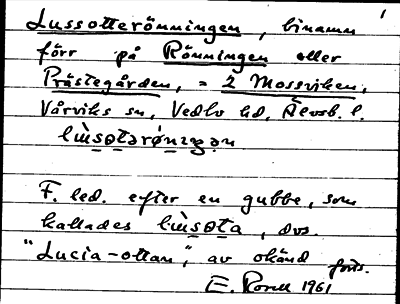 1
Lussotterönningen, binamn
förr på Rönningen eller
Prästegården, = 2 Mossviken,
Vårviks sn, Vedbo hd, Älvsb. l.
F. led. efter en gubbe, som
kallades dvs.
"Lucia-ottan", av okänd forts.
E. 1961